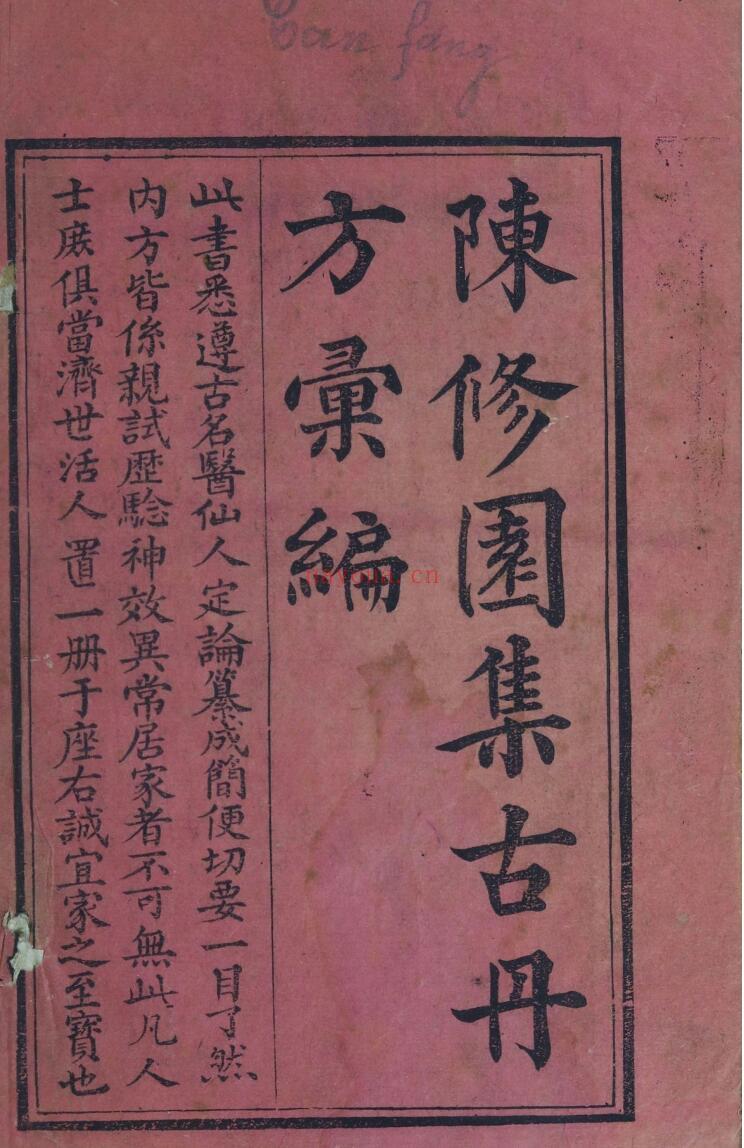 Tan fang
陳修園集古丹
方彙編
此書悉遵古名醫仙人定論纂成簡便切要一目了然
内方皆係親試歷驗神效異常居家者不可無此凡人
士庶俱當濟世活人置一册于座右誠宜家之至寶也
nayona.cn